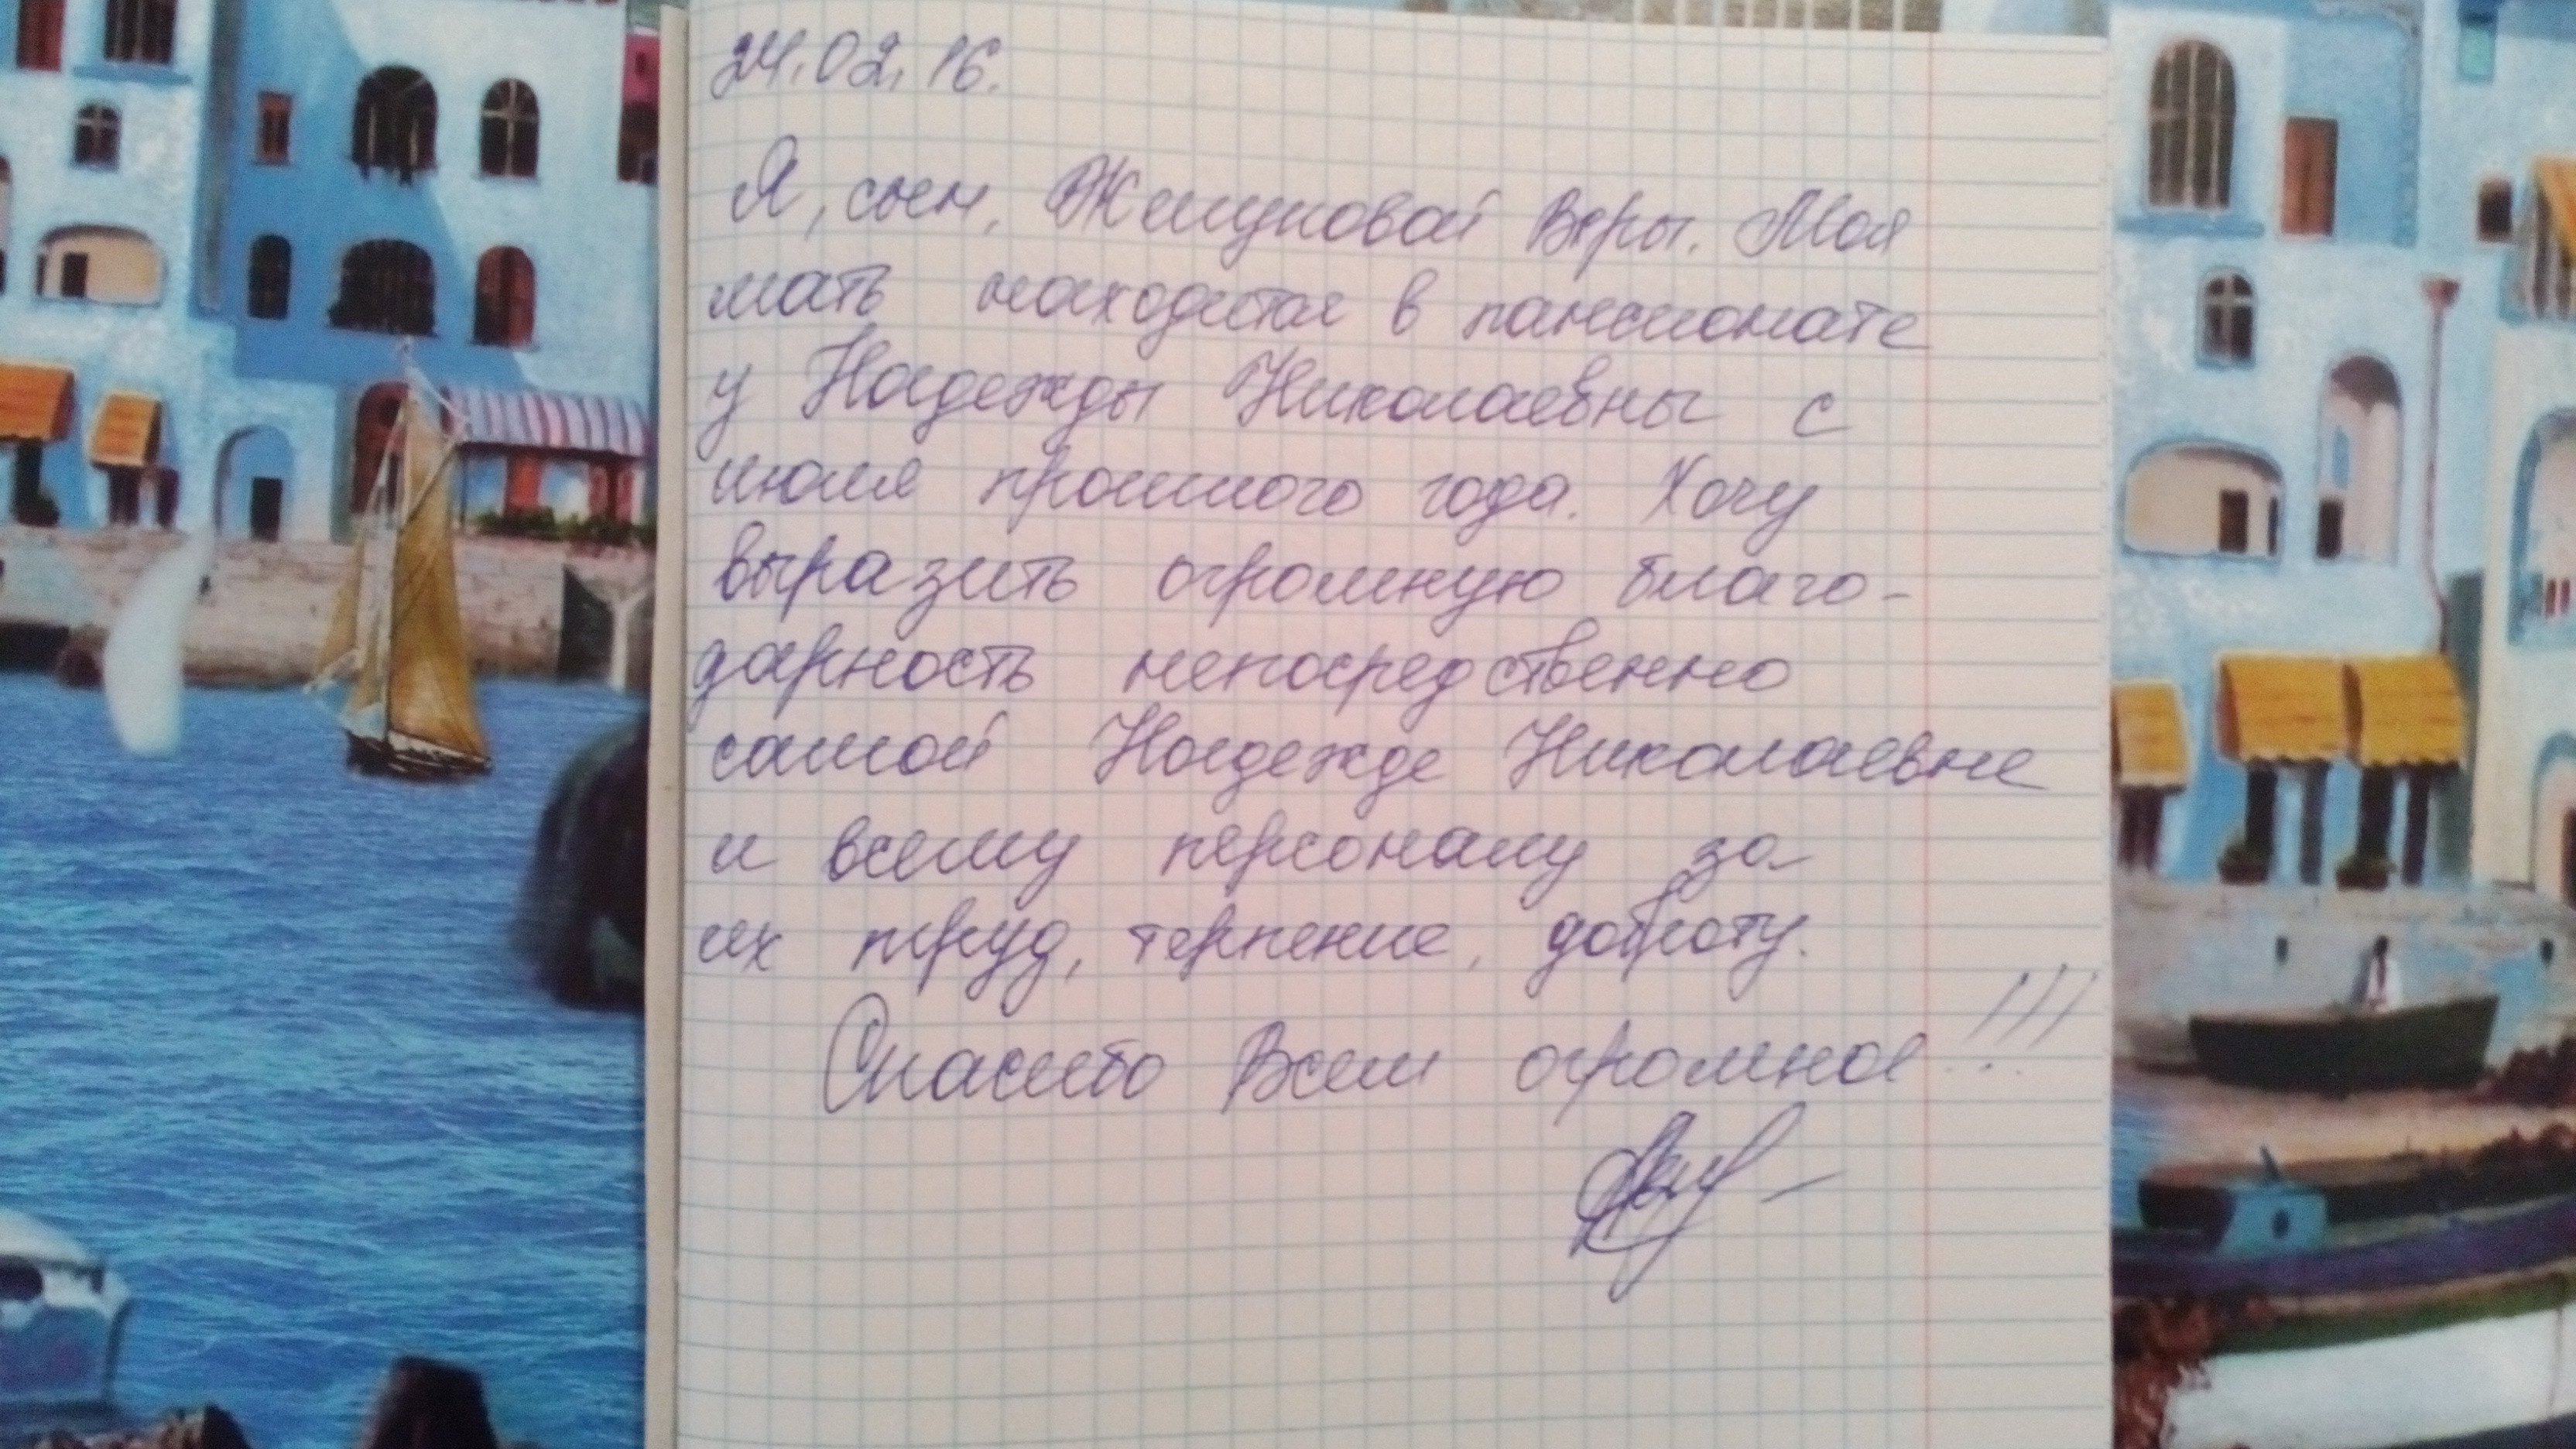 24.02.16.
Я, сын, Жемуковой Веры. Моя
мать находится в пансионате
у Надежды Николаевны с
июля прошлого года. Хочу
выразить огромную благо-
дарность непосредственно
самой Надежде Николаевне
и всему персоналу за
их труд, терпение, доброту.
Спасибо Всем огромное!!!